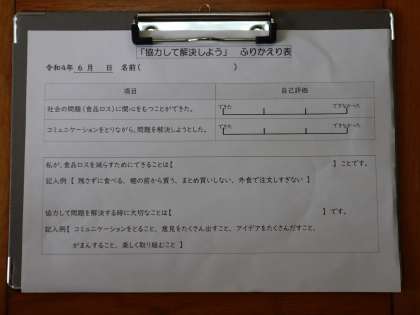 「協力して解決しよう」 ふりかえり表
令和4年 6 月 日 名前( )
項目 自己評価
社会の問題(食品ロス)に関心をもつことができた。 できた できなかった
コミュニケーションをとりながら、問題を解決しようとした。 できた できなかった
私が、食品ロスを減らすためにできることは【 】ことです。
記入例【 残さずに食べる、棚の前から買う、まとめ買いしない、外食で注文しすぎない 】
協力して問題を解決する時に大切なことは【 】です。
記入例【 コミュニケーションをとること、意見をたくさん出すこと、アイデアをたくさんだすこと、
がまんすること、楽しく取り組むこと 】